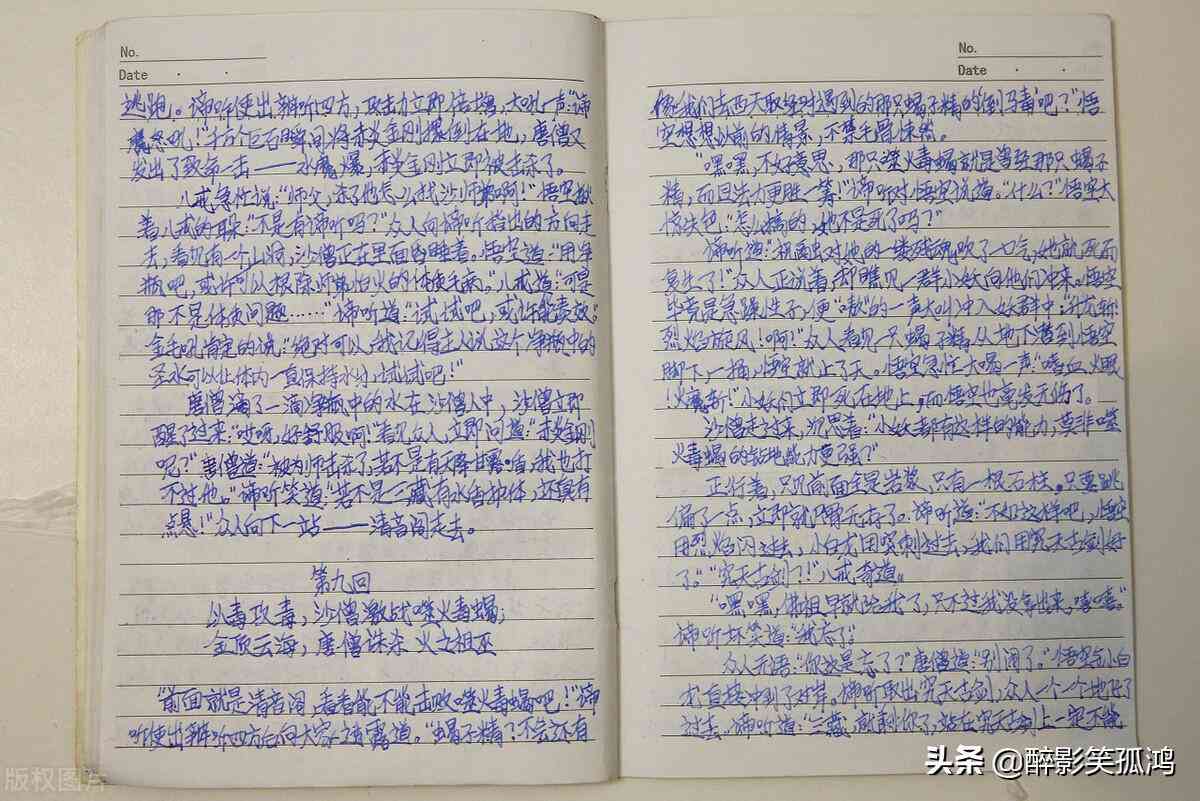 No.
Date
逃跑。谛听使出辨听四方,攻击力立即倍增,大吼一声:“谛
怒吼!”千万个巨石瞬间将赤炎金刚摆倒在地,唐僧又
发出了致命一击——水魔爆,赤炎金刚立即被击杀了。
八戒急忙说:“师父,杀了他怎么找沙师弟啊!”悟空揪
着八戒的耳朵:“不是有谛听吗?”众人向谛听指出的方向走
去,看见有一个山洞,沙僧正在里面昏睡着。悟空道:“用净
瓶吧,或许可以根除师弟怕火的体质毛病。”八戒道:“可是
那不是体质问题……”谛听道:“试试吧,或许能奏效。”
金毛吼肯定的说:“绝对可以,我记得主人说这个净瓶中的
圣水可以让体内一直保持水分,试试吧!”
唐僧滴了一滴净瓶中的水在沙僧人中,沙僧立即
醒了过来:“哎呀,好舒服啊!”看见众人,立即问道:“赤炎金刚
呢?”唐僧道:“被为师击杀了,若不是有天降甘露,我也打
不过他。”谛听笑道:“若不是三藏有水的神体,还真有
点悬!”众人向下一站——清音阁走去。
第九回
以毒攻毒,沙僧激战噬火毒蝎;
金顶云海,唐僧诛杀火之祖巫
“前面就是清音阁,看看能不能击败噬火毒蝎吧!”谛
听使出辨听四方后向大家透露道。“蝎子精?不会还有
No.
Date
像我们去西天取经时遇到的那只蝎子精的倒马毒吧?”悟
空想想以前的情景,不禁毛骨悚然。
“嘿嘿,不好意思,那只噬火毒蝎就是当年那只蝎子
精,而且法力更胜一筹!”谛听对悟空说道。“什么?”悟空大
惊失色:“怎么搞的,她不是死了吗?”
谛听道:“祖巫对他的一缕残魂吹了一口气,她就死而
复生了!”众人正说着,却瞧见一群小妖向他们冲来。悟空
毕竟是急躁性子,便“嗷”的一声大叫冲入妖群中:
烈焰旋风!啊!”众人看见一只蝎子精从地下遁到悟空
脚下,一捅,悟空就上了天。悟空急忙大喝一声:“嗜血火眼
!火魔斩!”小妖们立即死在地上,而悟空也毫发无伤了。
沙僧走过来,沉思着:“小妖都有这样的能力,莫非噬
火毒蝎的钻地能力更强?”
正行着,只见前面全是岩浆,只有一根石柱。只要跳
偏了一点,立即就尸骨无存了。谛听道:“不如这样吧,悟空
用烈焰闪过去,小白龙用突刺过去,我们用荒天古剑好
了。”“荒天古剑?!”八戒奇道。
“嘿嘿,佛祖早就给我了,只不过我没拿出来,嘻嘻。”
谛听坏笑道:“我忘了。”
众人无语:“你这是忘了?”唐僧道:“别闹了。”悟空与小白
龙直接冲到了对岸。谛听取出荒天古剑,众人一个一个地飞了
过去。谛听道:“三藏,就剩你了,站在荒天古剑上一定不能
版权图片
头条 @醉影笑孤鸿